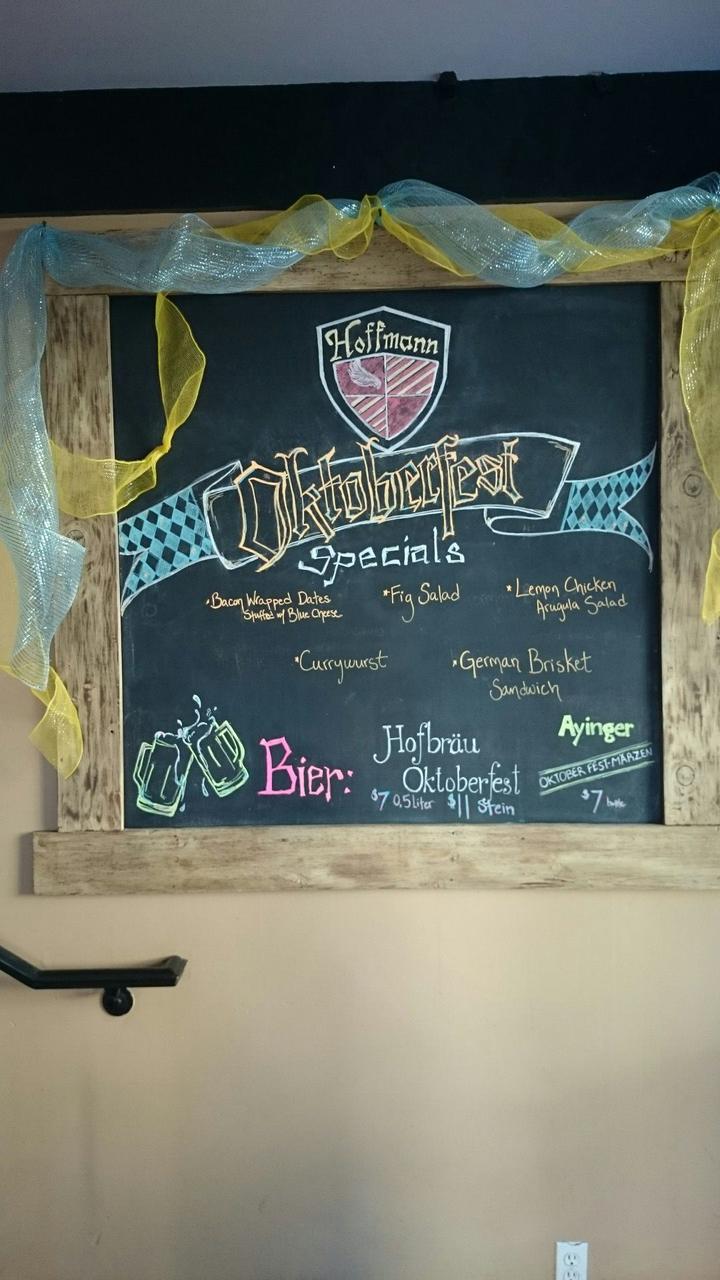 Hoffmann
Oktoberfest
Specials
*Bacon Wrapped Dates
Stuffed w/ Blue Cheese
*Fig Salad
*Lemon Chicken
Arugula Salad
*Currywurst
*German Brisket
Sandwich
Bier:
Hofbräu
Oktoberfest
$7 0,5 liter $11 Stein
Ayinger
OKTOBER FEST-MÄRZEN
$7 bottle